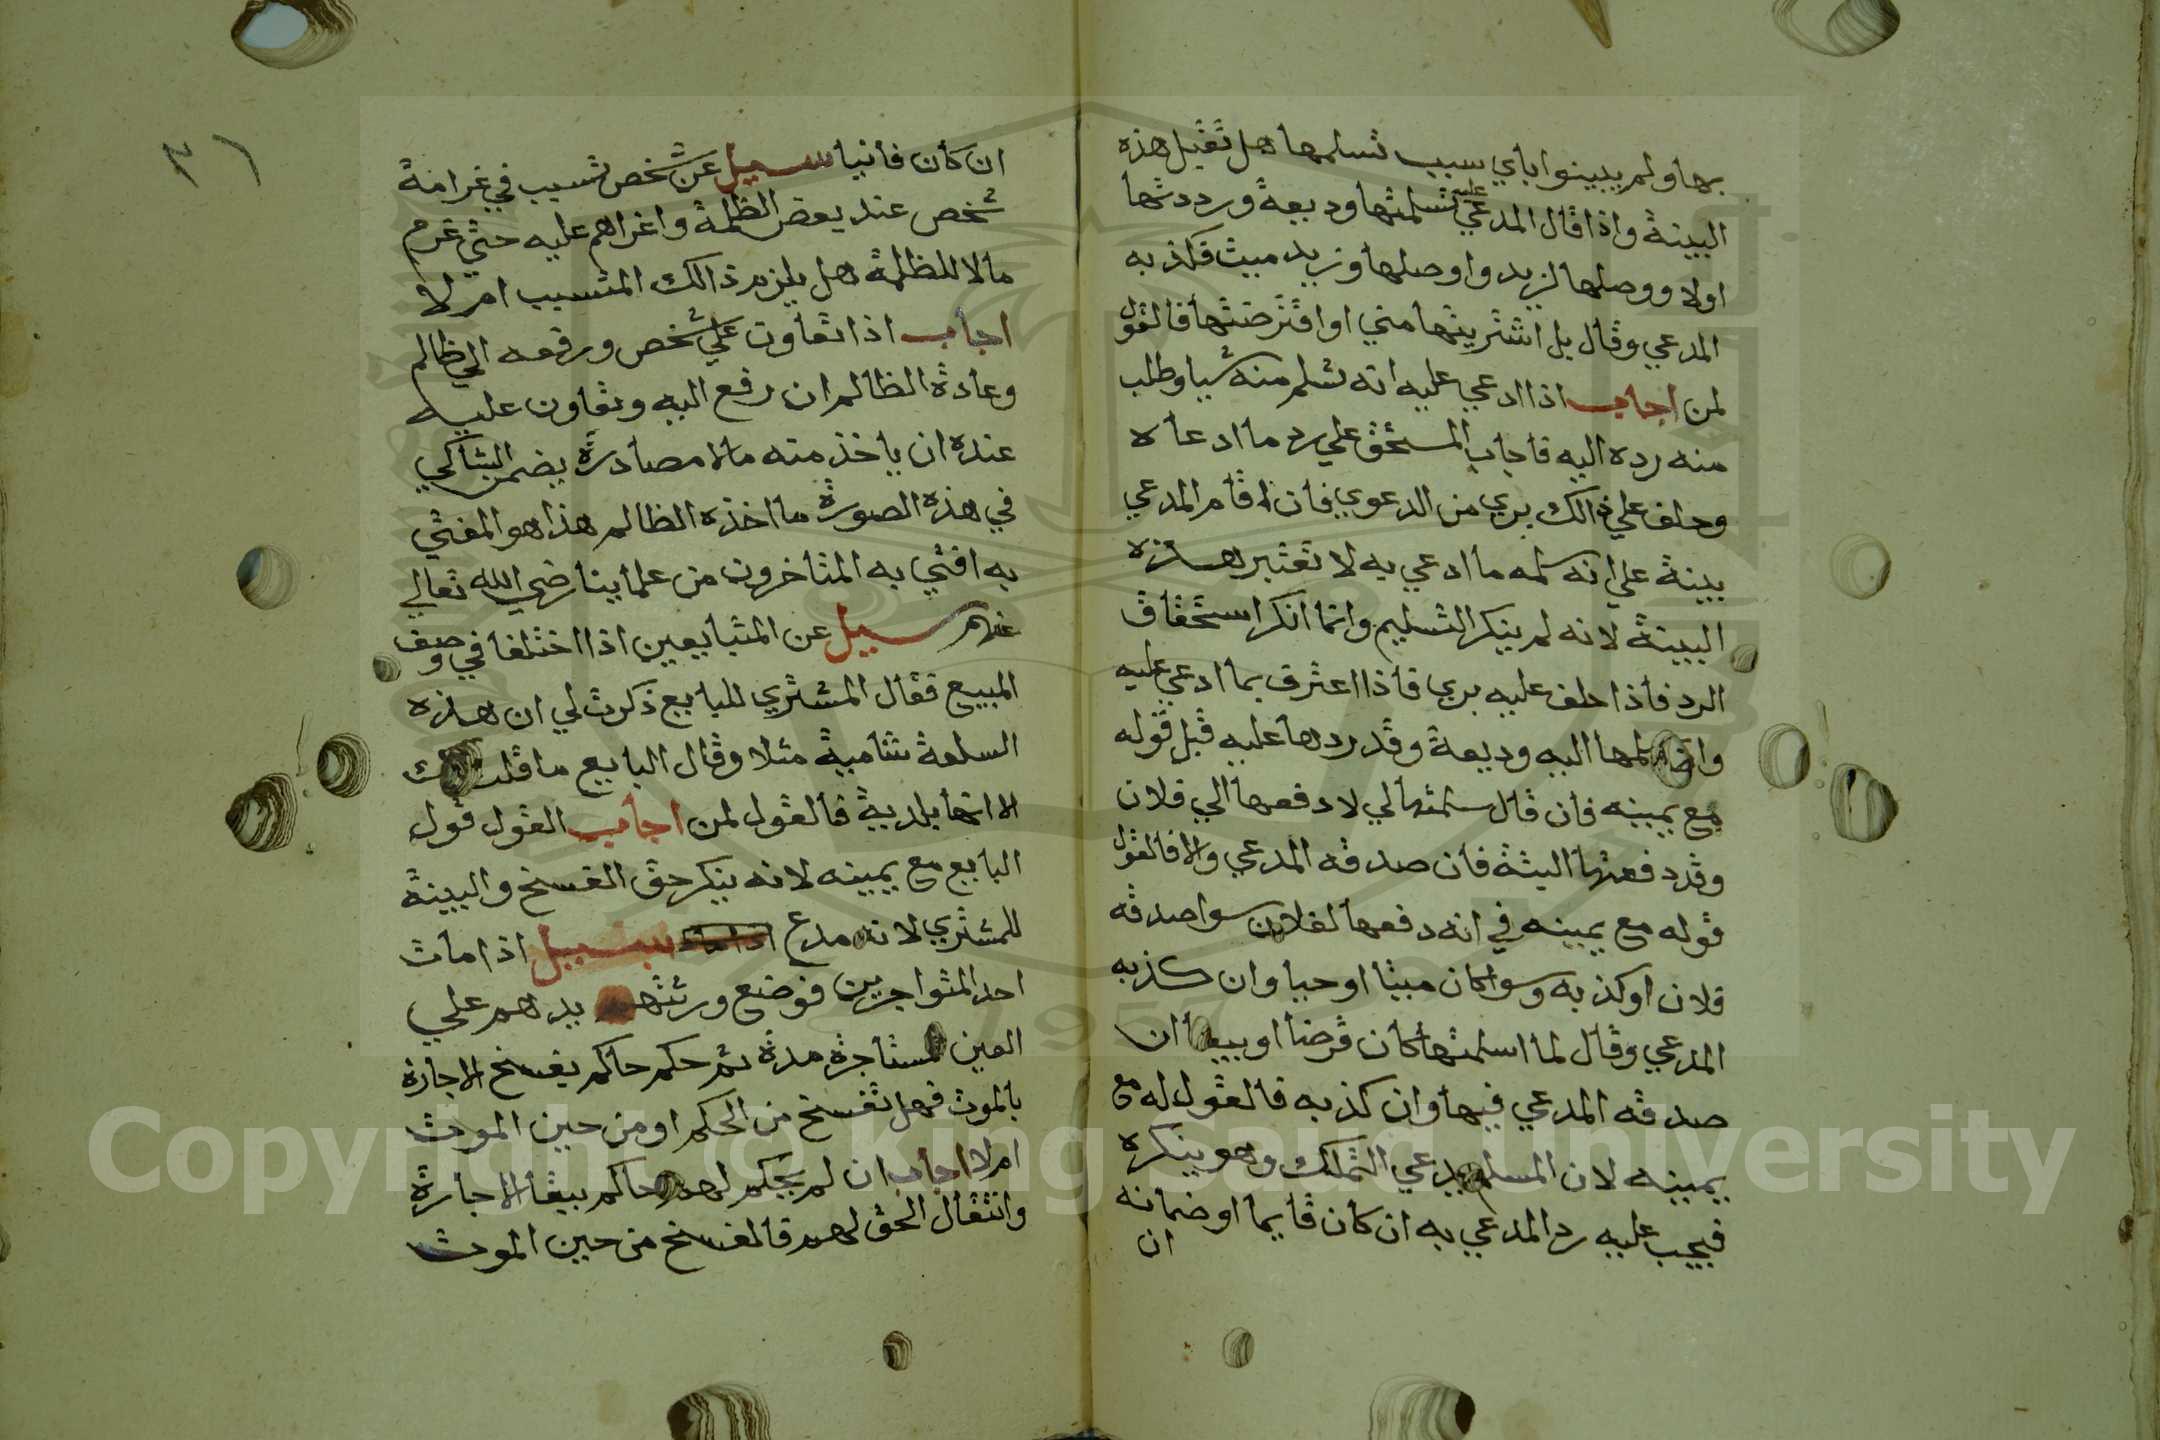 بها ولم يبينوا باي سبب تسلمها هل تقبل هذه
البينة واذا قال المدعي عليه تسلمتها وديعة ورددتها
اولا ووصلها لزيد واوصلها وزيد ميت فكذبه
المدعي وقال بل اشتريتها مني او اقترضتها فالقول
لمن اجاب اذا ادعي عليه انه تسلم منه شيا وطلب
منه رده اليه فاجاب المستحق علي رد ما ادعاه
وحلف علي ذالك بري من الدعوي فان اقام المدعي
بينة علي انه سلمه ما ادعي به لا تعتبر هذه
البينة لانه لم ينكر التسليم وانما انكر استحقاق
الرد فاذا حلف عليه بري فاذا اعترف بما ادعي عليه
وانه سلمها اليه وديعة وقد ردها عليه قبل قوله
مع يمينه فان قال سلمتها لي لادفعها الي فلان
وقد دفعتها اليثه فان صدقه المدعي والا فالقول
قوله مع يمينه في انه دفعها لفلان سوا صدقه
فلان او كذبه وسوا كان ميتا او حيا وان كذبه
المدعي وقال لما اسلمتها كان قرضا او بيعا ان
صدقه المدعي فيها وان كذبه فالقول له مع
يمينه لان المسلم يدعي التملك وهو ينكره
فيجب عليه رد المدعي به ان كان قايما او ضمانه
ان
٣١
ان كان فانيا سيل عن شخص تسبب في غرامة
شخص عند بعض الظلمة واغراهم عليه حتي غرم
مالا للظلمة هل يلزم ذالك المتسبب ام لا
اجاب اذا تعاون علي شخص ورفعه الي ظالم
وعادة الظالم ان رفع اليه وتعاون عليه
عنده ان ياخذ منه مالا مصادرة يضمن الشاكي
في هذه الصورة ما اخذه الظالم هذا هو المفتي
به افتي به المتاخرون من علماينا رضي الله تعالي
عنهم سيل عن المتبايعين اذا اختلفا في وصف
المبيع فقال المشتري للبايع ذكرت لي ان هذه
السلعة شامية مثلا وقال البايع ما قلت لك
الا انها بلدية فالقول لمن اجاب القول قول
البايع مع يمينه لانه ينكر حق الفسخ والبينة
للمشتري لانه مدع سيل اذا مات
احد المتواجرين فوضع ورثتهم يدهم علي
العين المستاجرة مدة ثم حكم حاكم بفسخ الاجارة
بالموت فهل تفسخ من الحكم او من حين الموت
ام لا اجاب ان لم يحكم لهم حاكم ببقا الاجارة
وانتقال الحق لهم فالفسخ من حين الموت
Copyright © King Saud University
1957